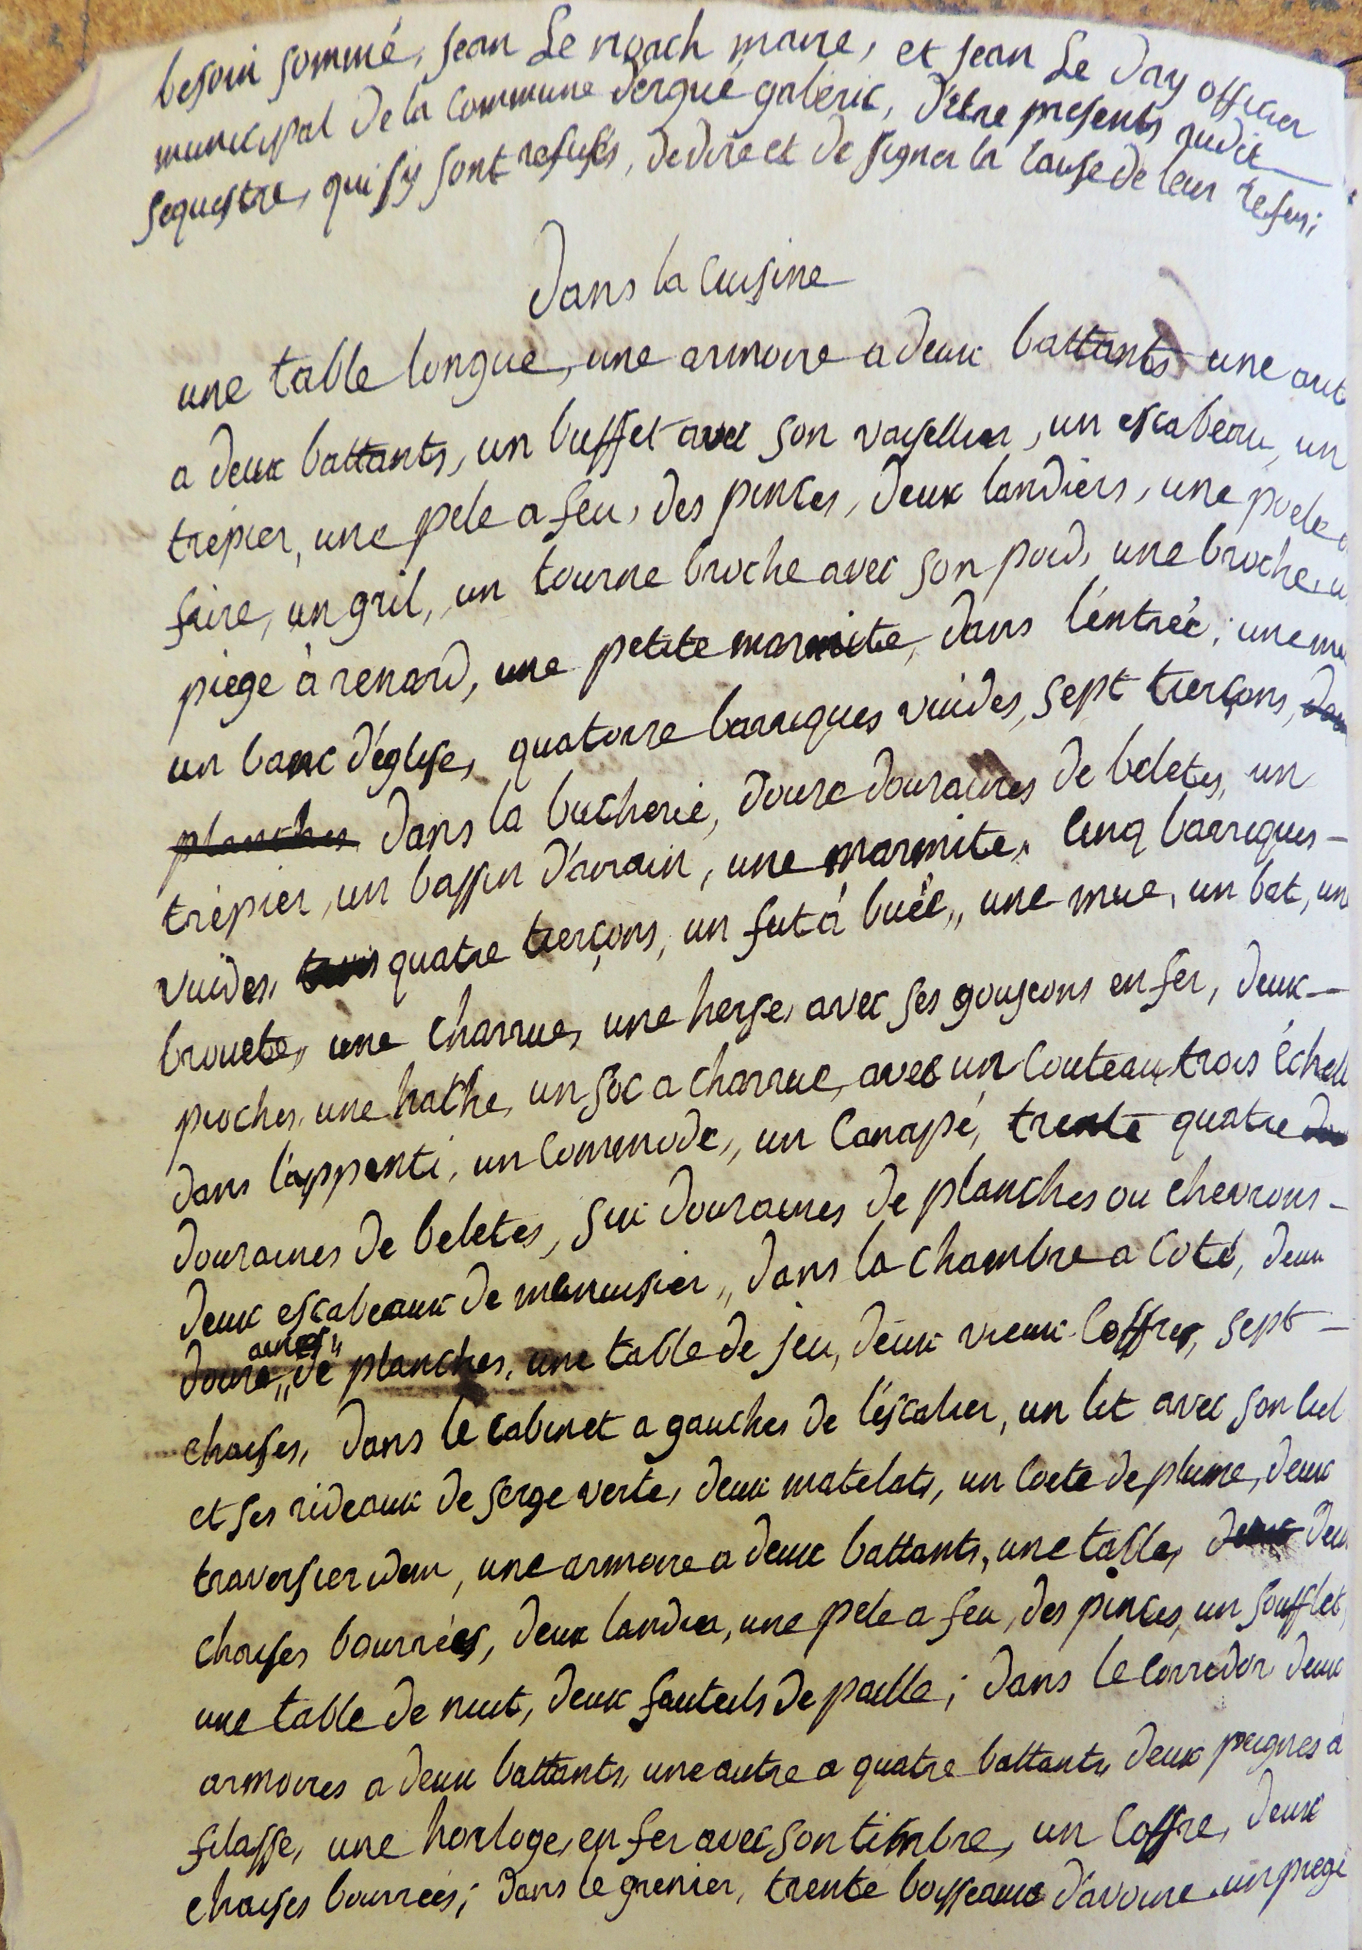 besoin sommé, jean Le noach maire, et jean Le Day officier
municipal de la Commune d'ergué gabéric, d'etre presents audit
sequestre, qui s'y sont refusés, de dire et de signer la cause de leur refus;
Dans la Cuisine
une table longue, une armoire a deux battants une aut
a deux battants, un buffet avec son vaisellier, un escabeau, un
trépier, une pele a feu, des pinces, deux landiers, une poele a
faire, un gril, un tourne broche avec son poid, une broche, u
piege à renard, une petite marmite, dans l'éntrée, une
un banc d'églyse, quatorze barriques vuides, sept tierçons,
planches dans la bucherie, douze douzaines de beletes, un
trépier, un bassin d'airain, une marmite, Cinq barriques
vuides, trois quatre tierçons, un fut à buée, une mue, un bat, une
brouete, une charrue, une herse, avec ses goujeons en fer, deux
pioches, une hache, un soc a charrue, avec un Couteau, trois échell
dans l'appenti, un Commode, un Canapé, trente quatre
douzaines de beletes, six douzaines de planches ou chevrons
deux escabeaux de menuisier, dans la chambre a Coté, deux
aines
douze de planches, une table de jeu, deux vieux Coffres, sept
chaises, dans le Cabinet a gauches de l'éscalier, un lit avec son
et ses rideaux de serge verte, deux matelats, un Coete de plume, deux
traversier idem, une armoire a deux battants, une table, deux deux
chaises bourrées, deux landier, une pele a feu, des pinces, un soufflet,
une table de nuit, deux fauteuls de paille; dans le Corredor deux
armoires a deux battants, une autre a quatre battants, deux peignes à
filasse, une horloge, en fer avec son timbre, un Coffre, deux
chaises bourrées; dans le grenier, trente boisseaux d'avoine un piege